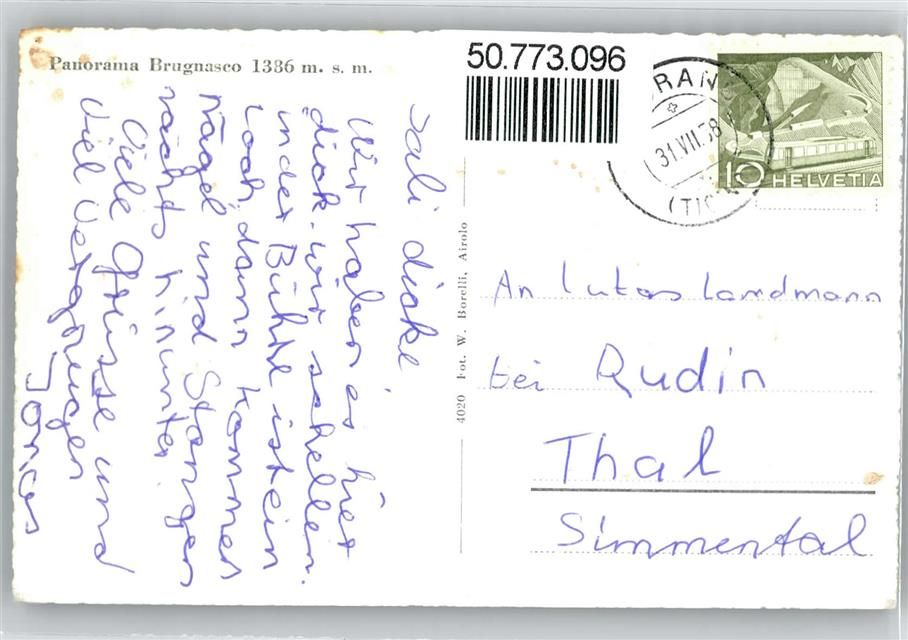 Panorama Brugnasco 1386 m. s. m.
50.773.096
31.VII.58
(TIC
10 HELVETIA
Sali dicke
Wir haben es hiet
dick. wir schellen.
in der Bühne ist ein
Loch dann kommen
Nägel und Stangen
nacht hinunter
Viele Grüsse und
Viel Vergnügen
Jonas
4020 Fot. W. Borelli, Airolo
An Lukas Landmann
bei Rudin
Thal
Simmental